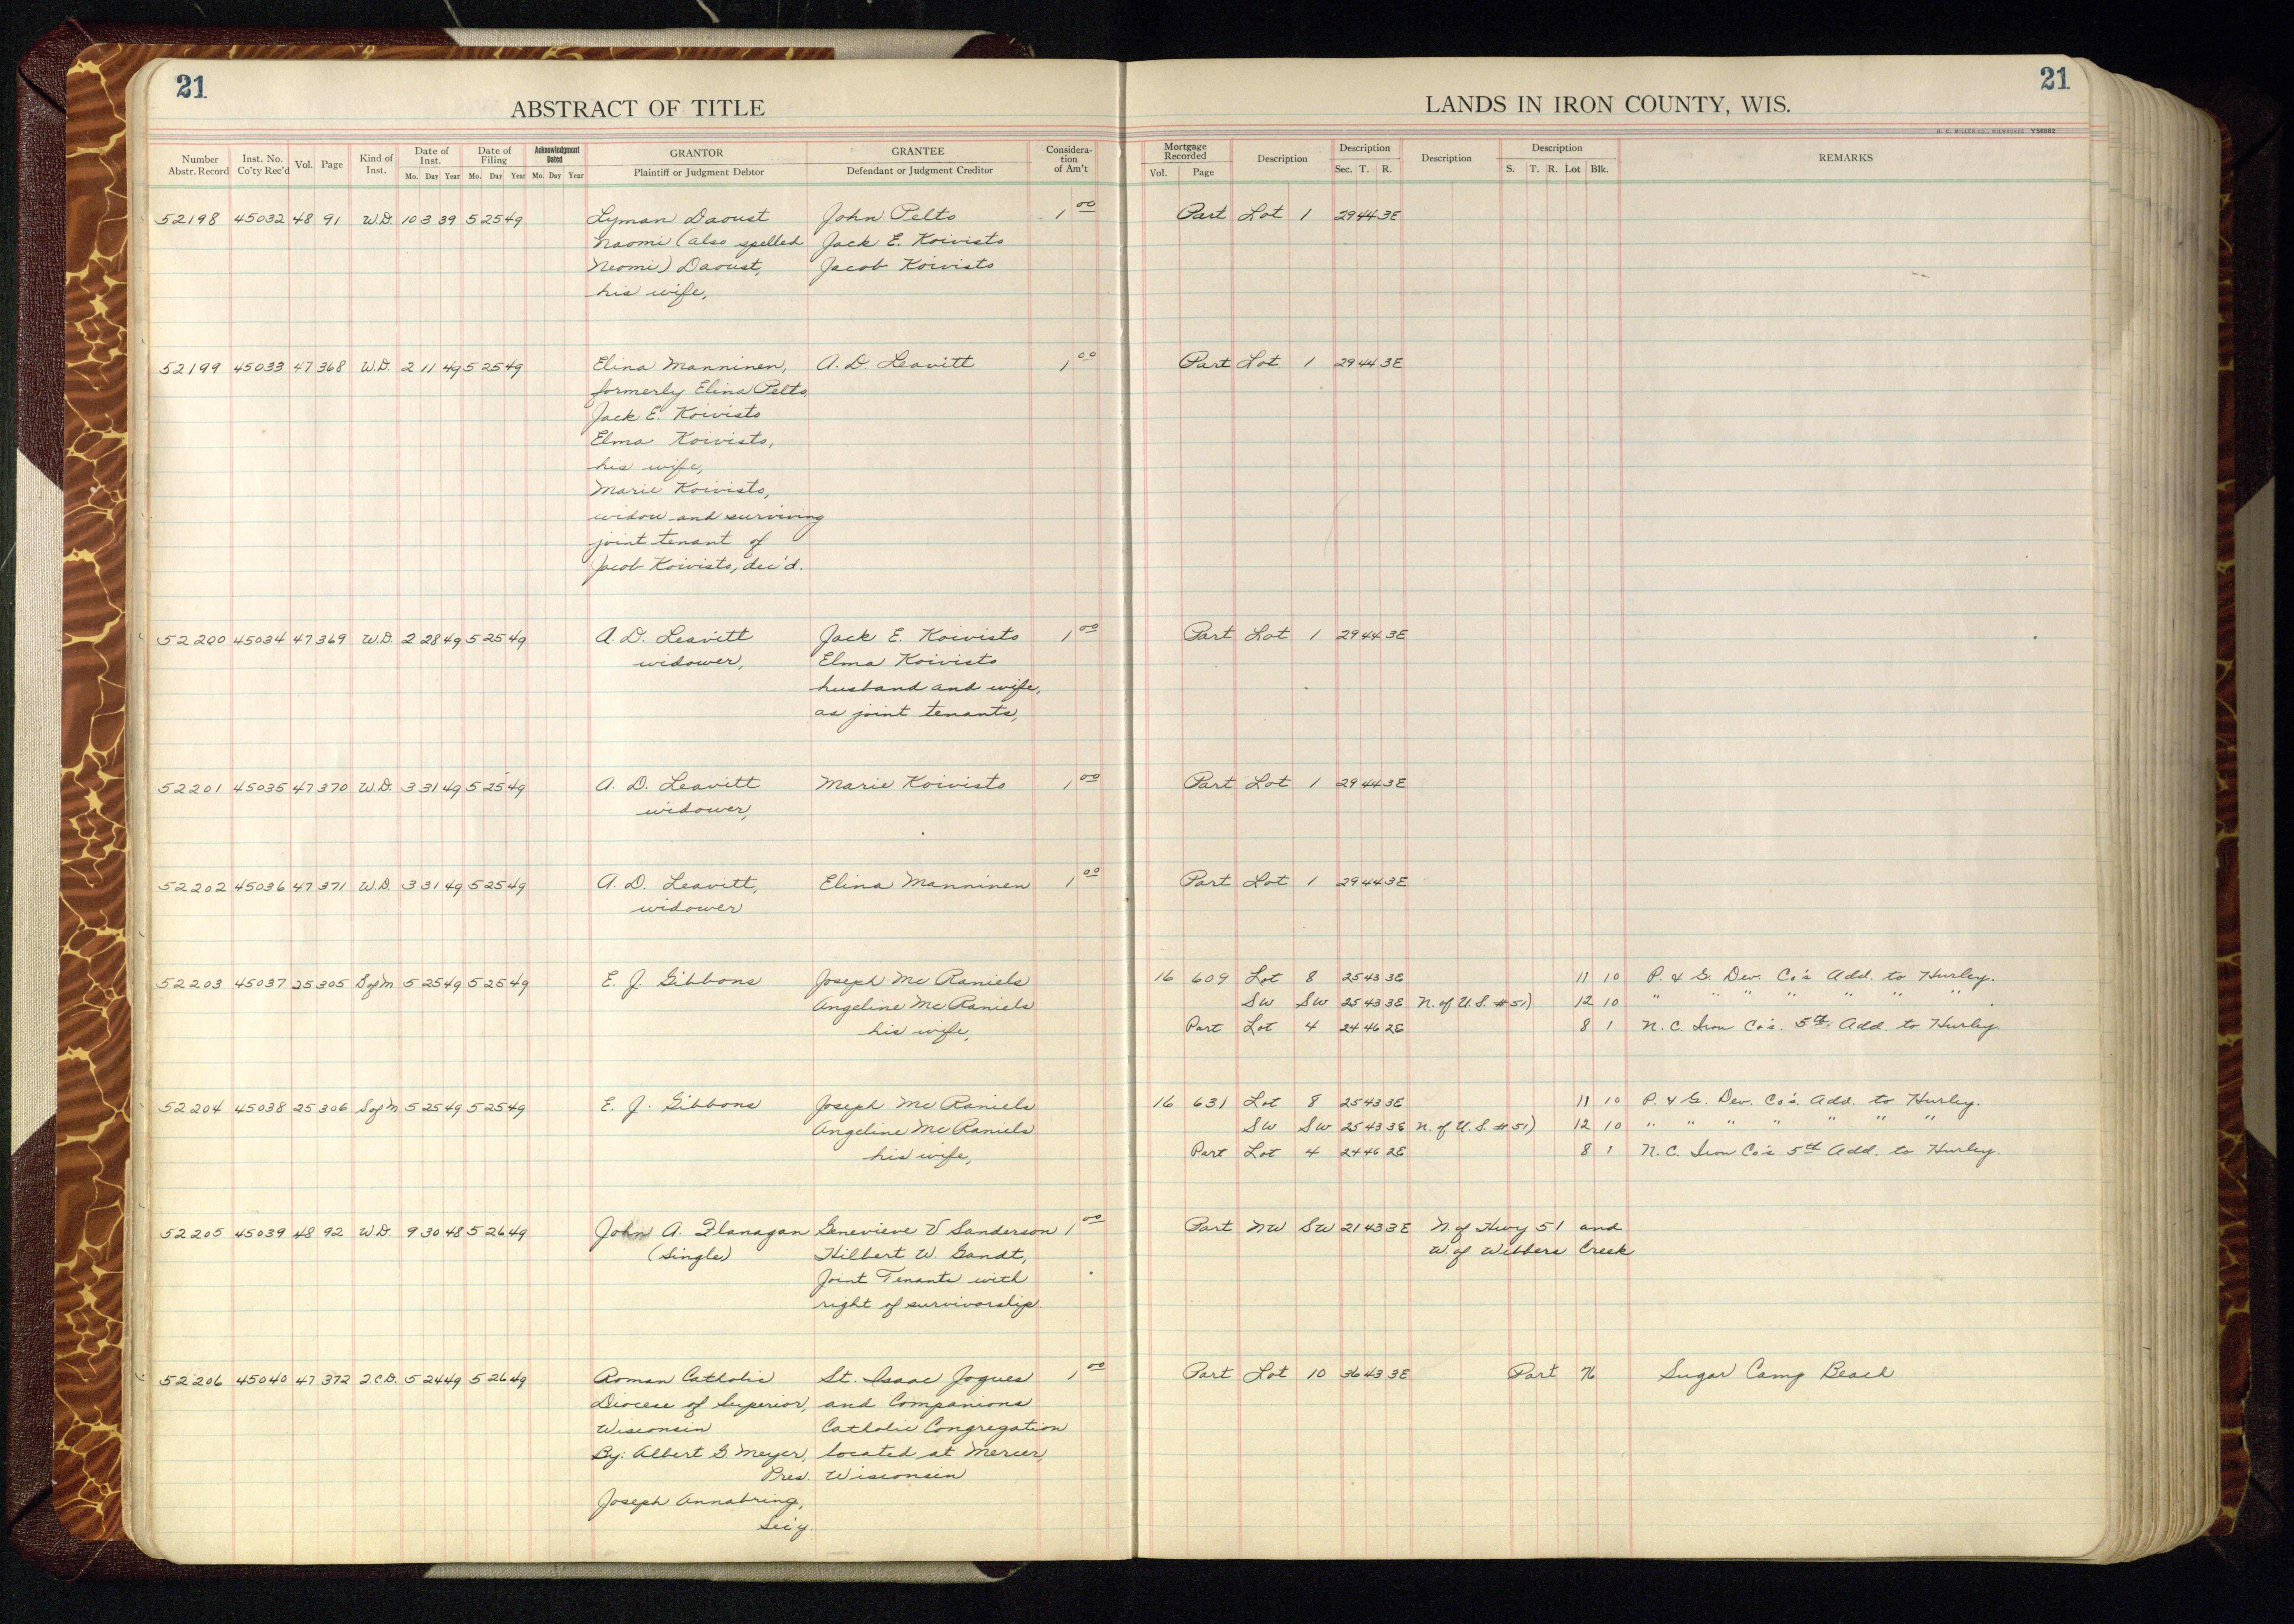 21
21
ABSTRACT OF TITLE
LANDS IN IRON COUNTY, WIS.
H. C. MILLER CO., MILWAUKEE Y56882
Number Abstr. Record Inst. No. Co'ty Rec'd Vol. Page Kind of Inst. Date of Inst. Mo. Day Year Date of Filing Mo. Day Year Acknowledgment Dated Mo. Day Year GRANTOR Plaintiff or Judgment Debtor GRANTEE Defendant or Judgment Creditor Considera-tion of Am't Mortgage Recorded Vol. Page Description Description Sec. T. R. Description Description S. T. R. Lot Blk. REMARKS
52198 45032 48 91 W.D. 10 3 39 5 25 49 Lyman Daoust John Pelto 1 00 Part Lot 1 29 44 3E
Naomi (also spelled Jack E. Koivisto
Neomi) Daoust, Jacob Koivisto
his wife,
52199 45033 47 368 W.D. 2 11 49 5 25 49 Elina Manninen, A. D. Leavitt 1 00 Part Lot 1 29 44 3E
formerly Elina Pelto,
Jack E. Koivisto
Elma Koivisto,
his wife,
Marie Koivisto,
widow and surviving
joint tenant of
Jacob Koivisto, dec'd.
52200 45034 47 369 W.D. 2 28 49 5 25 49 A. D. Leavitt Jack E. Koivisto 1 00 Part Lot 1 29 44 3E
widower, Elma Koivisto
husband and wife,
as joint tenants,
52201 45035 47 370 W.D. 3 31 49 5 25 49 A. D. Leavitt Marie Koivisto 1 00 Part Lot 1 29 44 3E
widower,
52202 45036 47 371 W.D. 3 31 49 5 25 49 A. D. Leavitt, Elina Manninen 1 00 Part Lot 1 29 44 3E
widower
52203 45037 25 305 S of M 5 25 49 5 25 49 E. J. Gibbons Joseph Mc Raniels 16 609 Lot 8 25 43 3E 11 10 P. & G. Dev. Co's Add. to Hurley.
Angeline Mc Raniels SW SW 25 43 3E N. of U.S. #51) 12 10 " " " " " " "
his wife, Part Lot 4 24 46 2E 8 1 N. C. Iron Co's. 5th Add. to Hurley.
52204 45038 25 306 S of M 5 25 49 5 25 49 E. J. Gibbons Joseph Mc Raniels 16 631 Lot 8 25 43 3E 11 10 P. & G. Dev. Co's. Add. to Hurley.
Angeline Mc Raniels SW SW 25 43 3E N. of U.S. #51) 12 10 " " " " " " "
his wife, Part Lot 4 24 46 2E 8 1 N. C. Iron Co's 5th Add. to Hurley.
52205 45039 48 92 W.D. 9 30 48 5 26 49 John A. Flanagan Genevieve V Sanderson 1 00 Part NW SW 21 43 3E N. of Hwy 51 and
(single) Hilbert W. Gandt, W. of Webbers Creek
Joint Tenants with
right of survivorship.
52206 45040 47 372 Q.C.D. 5 24 49 5 26 49 Roman Catholic St. Isaac Jogues 1 00 Part Lot 10 36 43 3E Part 76 Sugar Camp Beach
Diocese of Superior, and Companions
Wisconsin Catholic Congregation
By: Albert G. Meyer, located at Mercer,
Pres. Wisconsin
Joseph Annabring,
Sec'y.